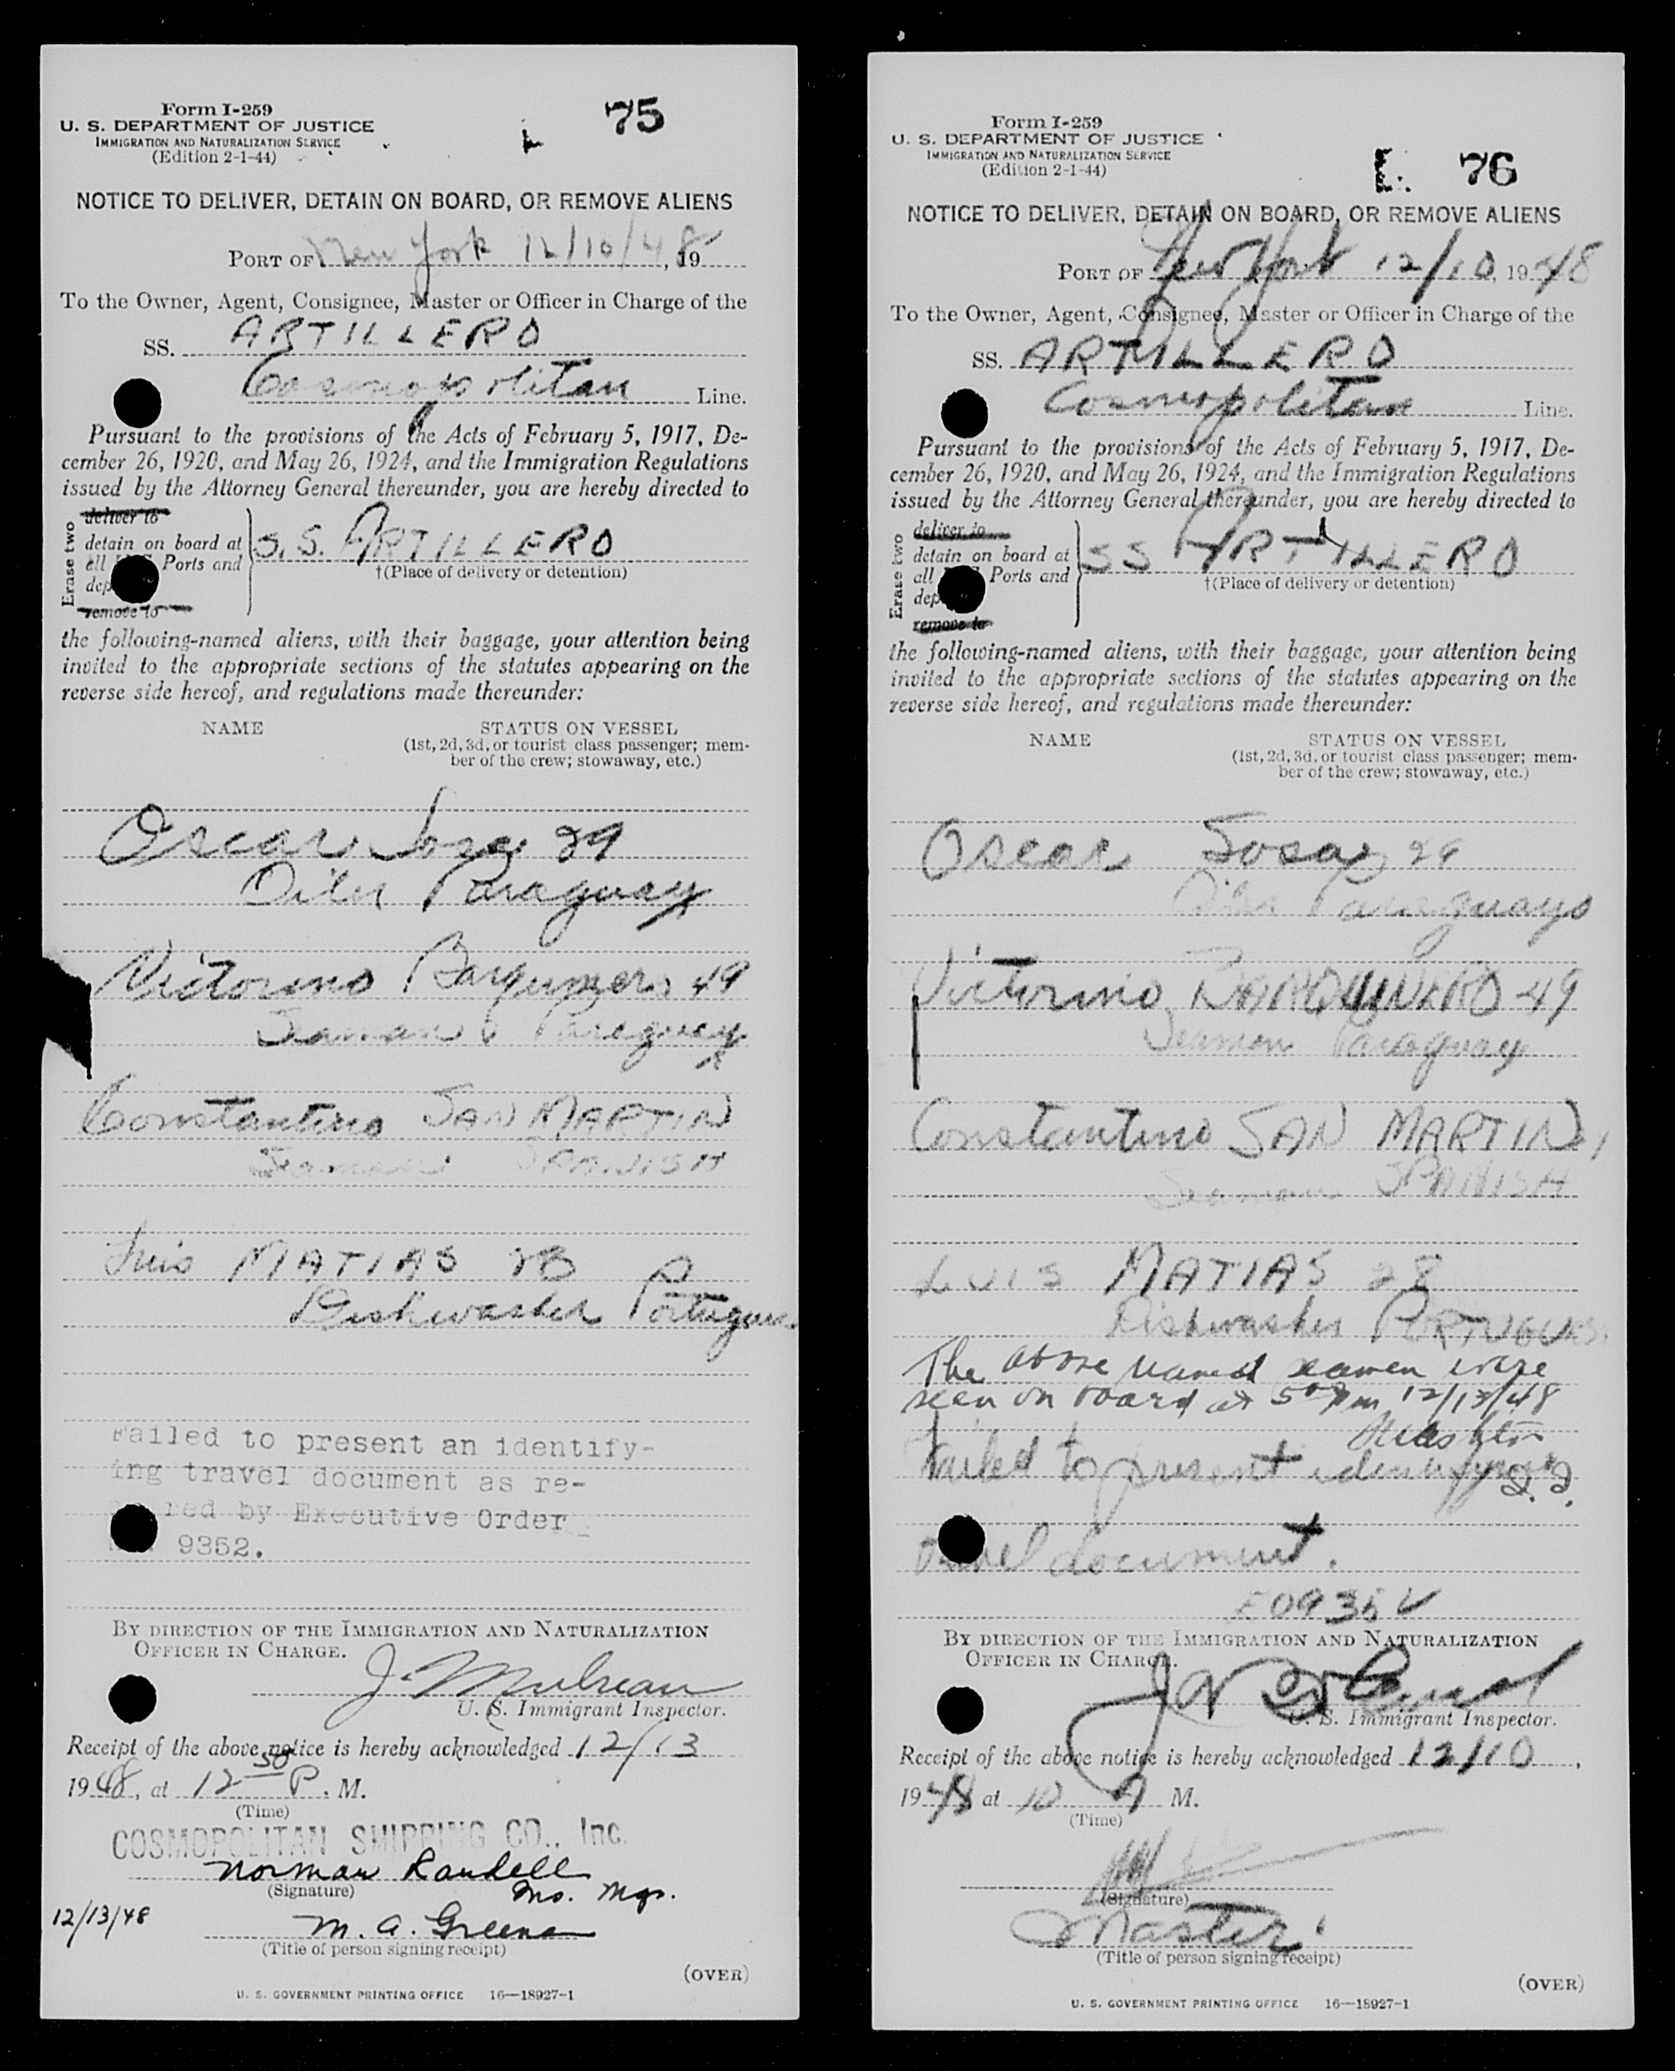 Form I-259
U. S. DEPARTMENT OF JUSTICE
IMMIGRATION AND NATURALIZATION SERVICE
(Edition 2-1-44)
75
NOTICE TO DELIVER, DETAIN ON BOARD, OR REMOVE ALIENS
PORT OF New York 12/10/48, 19
To the Owner, Agent, Consignee, Master or Officer in Charge of the
SS. ARTILLERO
Cosmopolitan Line.
Pursuant to the provisions of the Acts of February 5, 1917, De-
cember 26, 1920, and May 26, 1924, and the Immigration Regulations
issued by the Attorney General thereunder, you are hereby directed to
Erase two
deliver to
detain on board at
all Ports and
remove to
S.S. ARTILLERO
†(Place of delivery or detention)
the following-named aliens, with their baggage, your attention being
invited to the appropriate sections of the statutes appearing on the
reverse side hereof, and regulations made thereunder:
NAME STATUS ON VESSEL
(1st, 2d, 3d, or tourist class passenger; mem-
ber of the crew; stowaway, etc.)
Oscar Sosa 29
Oiler Paraguay
Victorino 49
Seaman Paraguay
Constantino SAN MARTIN
Seaman SPANISH
Luis MATIAS 28
Dishwasher
Failed to present an identify-
ing travel document as re-
by Executive Order
9352.
BY DIRECTION OF THE IMMIGRATION AND NATURALIZATION
OFFICER IN CHARGE.
U. S. Immigrant Inspector.
Receipt of the above notice is hereby acknowledged 12/13
1948, at 12 50 P. M.
(Time)
COSMOPOLITAN SHIPPING CO., Inc.
Norman Randell
(Signature)
12/13/48
M. A. Greene
(Title of person signing receipt)
(OVER)
U. S. GOVERNMENT PRINTING OFFICE 16—18927-1
Form I-259
U. S. DEPARTMENT OF JUSTICE
IMMIGRATION AND NATURALIZATION SERVICE
(Edition 2-1-44)
76
NOTICE TO DELIVER, DETAIN ON BOARD, OR REMOVE ALIENS
PORT OF New York 12/10, 1948
To the Owner, Agent, Consignee, Master or Officer in Charge of the
SS. ARTILLERO
Cosmopolitan Line.
Pursuant to the provisions of the Acts of February 5, 1917, De-
cember 26, 1920, and May 26, 1924, and the Immigration Regulations
issued by the Attorney General thereunder, you are hereby directed to
Erase two
deliver to
detain on board at
all Ports and
remove to
SS ARTILLERO
†(Place of delivery or detention)
the following-named aliens, with their baggage, your attention being
invited to the appropriate sections of the statutes appearing on the
reverse side hereof, and regulations made thereunder:
NAME STATUS ON VESSEL
(1st, 2d, 3d, or tourist class passenger; mem-
ber of the crew; stowaway, etc.)
Oscar Sosa 29
Oiler
Victorino 49
Seaman Paraguay
Constantino SAN MARTIN
Seaman SPANISH
LUIS MATIAS 28
Dishwasher
The above named seamen were
seen on board at 5 pm 12/13/48
Failed to present
document.
EO 9352
BY DIRECTION OF THE IMMIGRATION AND NATURALIZATION
OFFICER IN CHARGE.
U. S. Immigrant Inspector.
Receipt of the above notice is hereby acknowledged 12/10,
1948 at 10 A M.
(Time)
(Signature)
Master
(Title of person signing receipt)
(OVER)
U. S. GOVERNMENT PRINTING OFFICE 16—18927-1